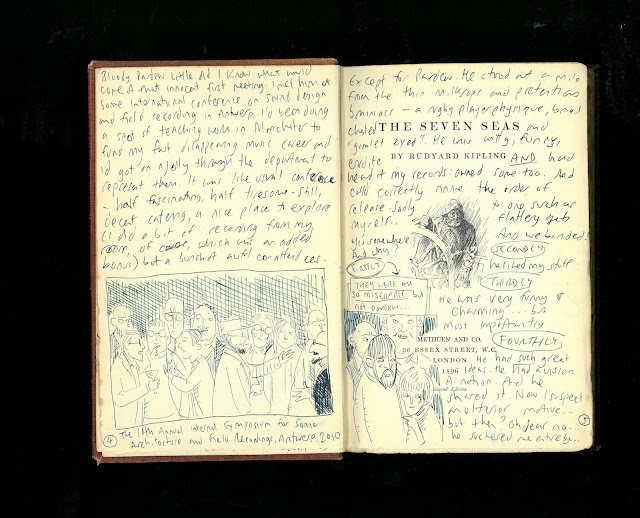 Bloody Pardew. Little did I know what would
come of that innocent first meeting. I met him at
some International conference on sound design
and field recording in Antwerp. I'd been doing
a spot of teaching work in Manchester to
fund my fast disappearing music career and
I'd got on a jolly through the department to
represent them. It was like usual conference
- half fascinating, half tiresome - still,
decent catering, a nice place to explore
(I did a bit of recording from my
room, of course, which was an added
bonus) but a bunch of awful co-attendees.
The 18th Annual Internat Symposium for Sonic
Architecture and Field Recordings, Antwerp 2010
4
Except for Pardew. He stood out a mile
from the thin milksops and pretentious
- a rugby player physique, broad
chested and
THE SEVEN SEAS
"gimlet eyed". He was witty, funny,
BY RUDYARD KIPLING
erudite AND had
heard of my records: owned some too. And
could correctly name the order of
release. Sadly
to one such as
myself..
flattery gets
you somewhere.
And we bonded!
And why?
FIRSTLY
SECONDLY
he liked my stuff
THEY WERE ALL
SO MISERABLE but
not Pardew...
THIRDLY
He was very funny &
charming... but
most importantly
METHUEN AND CO.
FOURTHLY
36 ESSEX STREET, W.C.
LONDON
He had such great
1896
ideas. He had a vision.
A notion. And he
Second Edition
shared it. Now I suspect
an ulterior motive...
but then? Oh dear no...
he suckered me entirely..
5